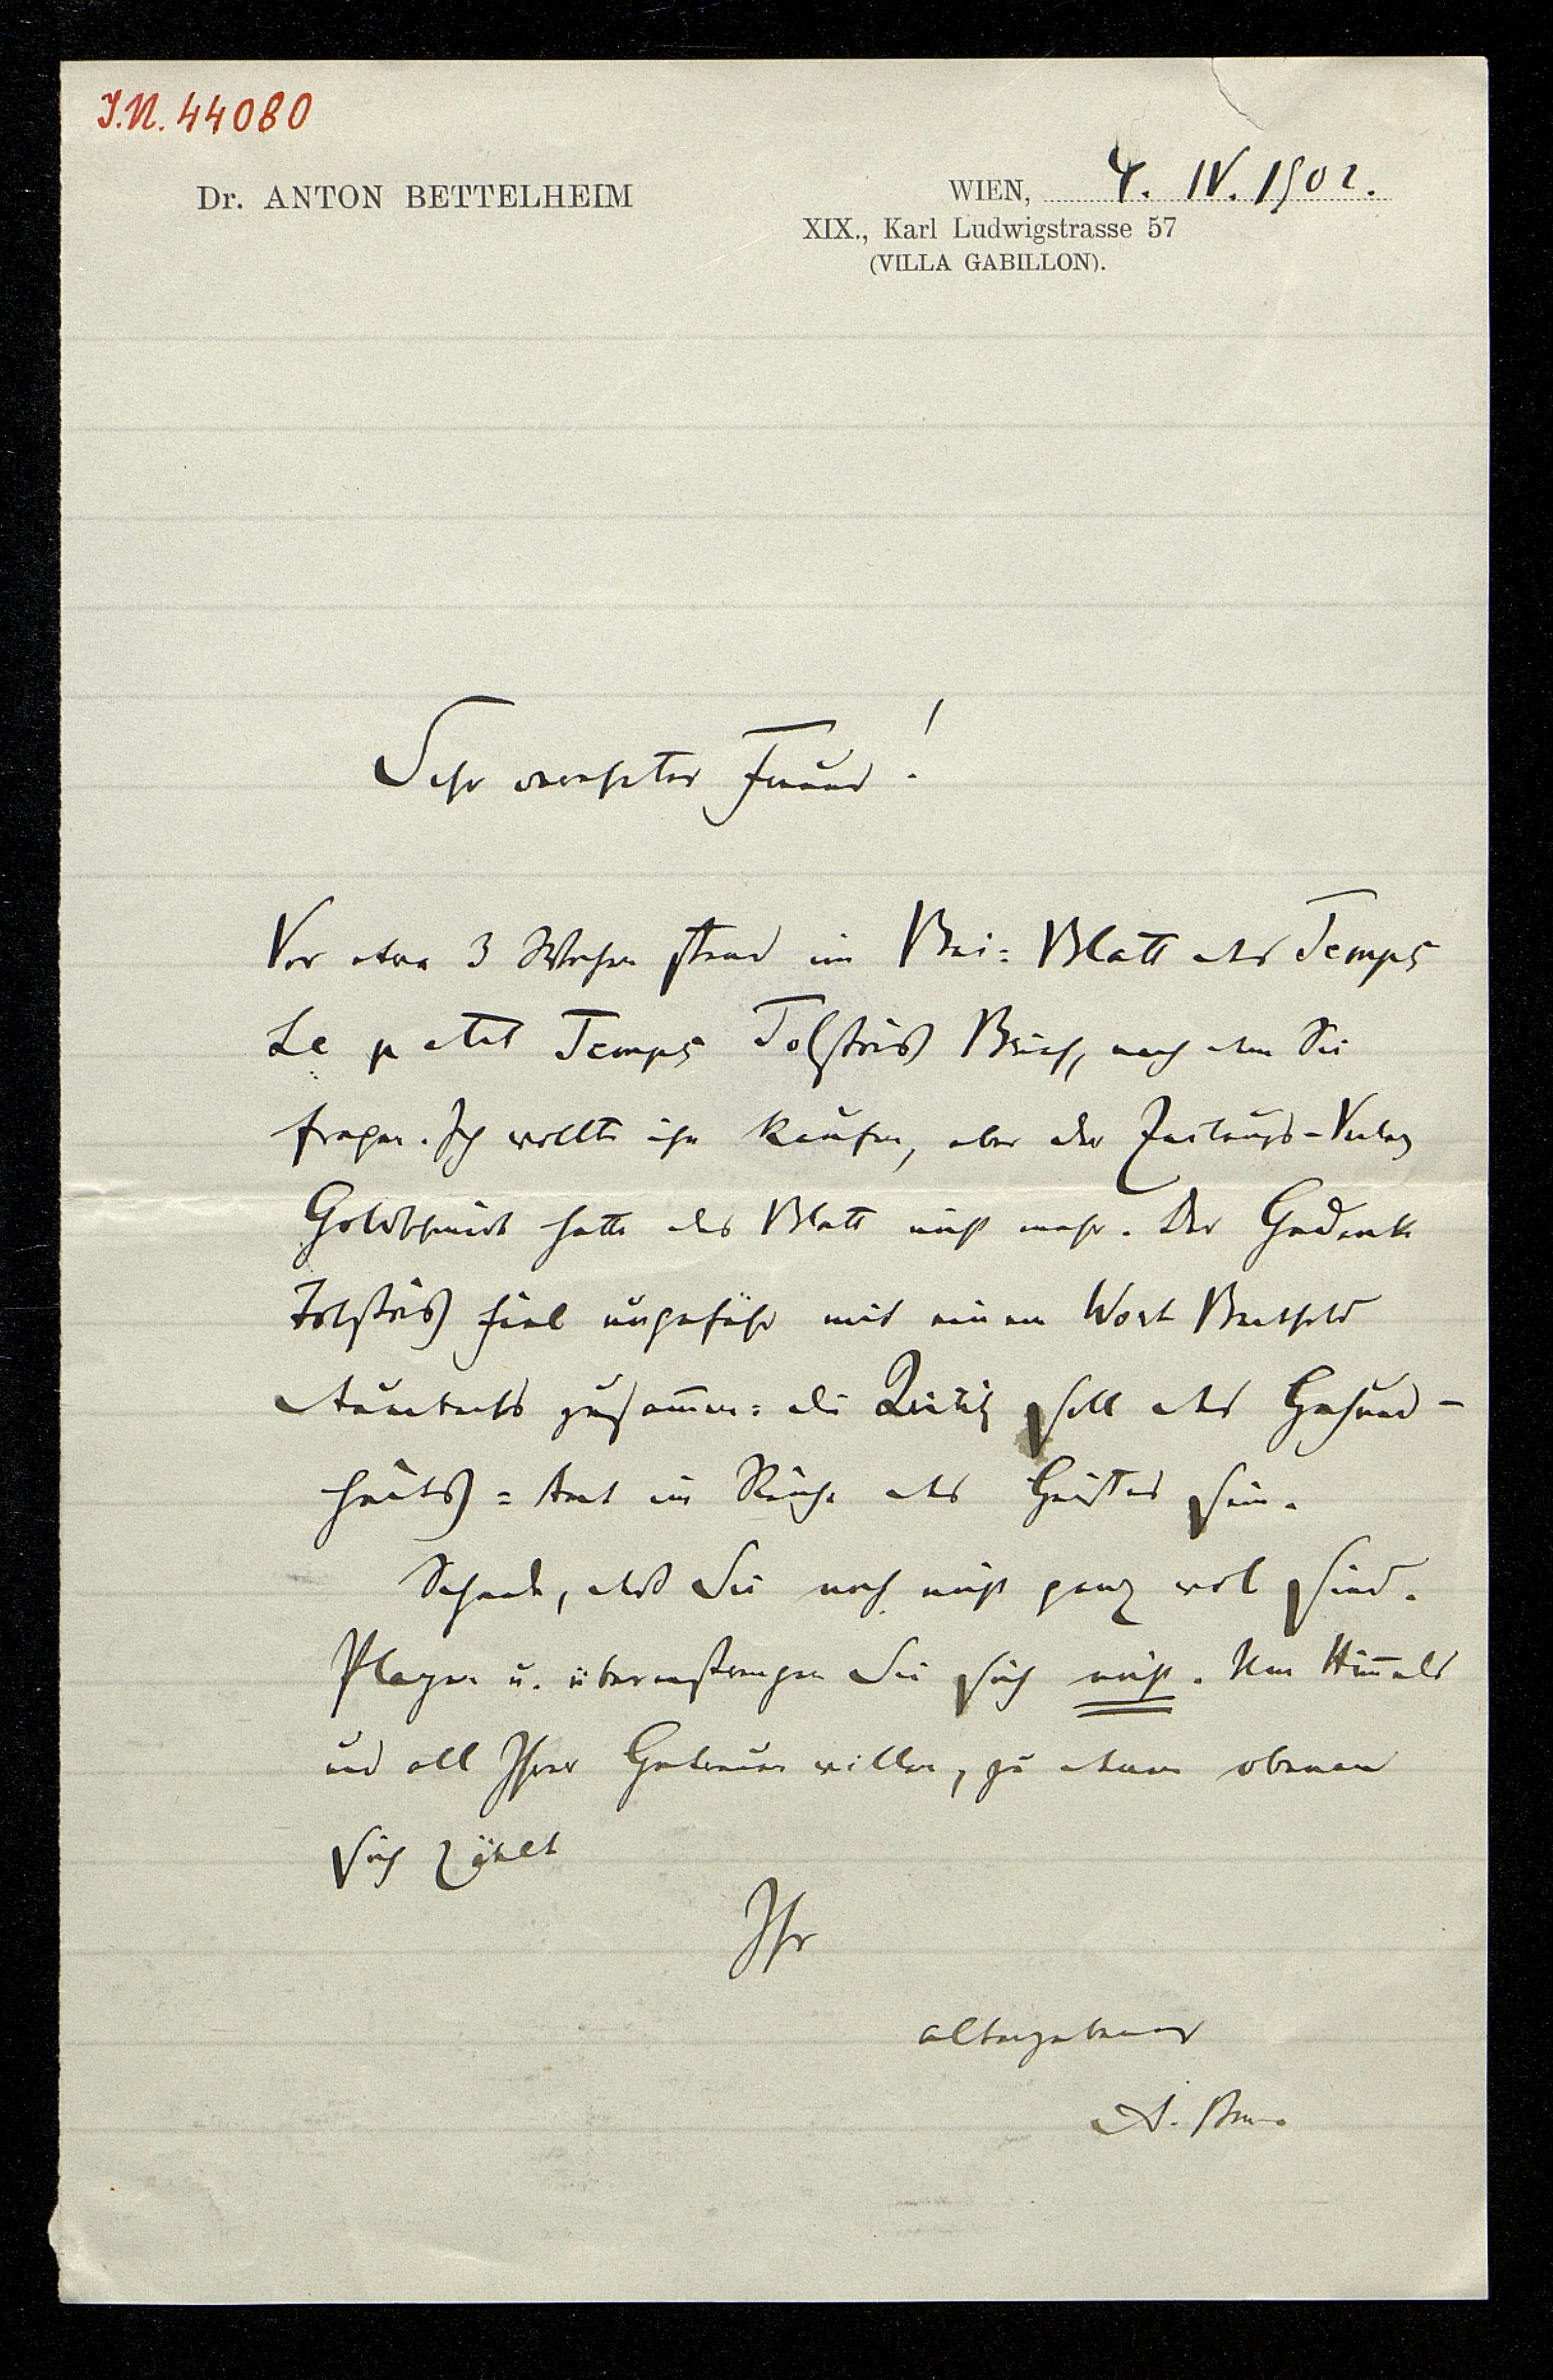 I.N. 44080
Dr. ANTON BETTELHEIM
WIEN, 4. IV. 1902.
XIX., Karl Ludwigstrasse 57
(VILLA GABILLON).
Sehr verehrter Freund!
Vor etwa 3 Wochen stand im Bei-Blatt des Temps
Le petit Temps Tolstois Brief, nach dem Sie
fragen. Ich wollte ihn kaufen, aber der Zeitungs-Verlag
Goldschmidt hatte das Blatt nicht mehr. Der Gedanke
Tolstois fiel ungefähr mit einem Wort Berthold
Auerbachs zusammen: die Kritik soll das Gesund-
heits-Amt im Reiche des Geistes sein.
Schade, daß Sie noch nicht ganz wol sind.
Plagen u. überanstrengen Sie sich nicht. Um Himmels
und all Ihrer Getreuen willen, zu denen obenan
sich zählt
Ihr
altergebener
A. B